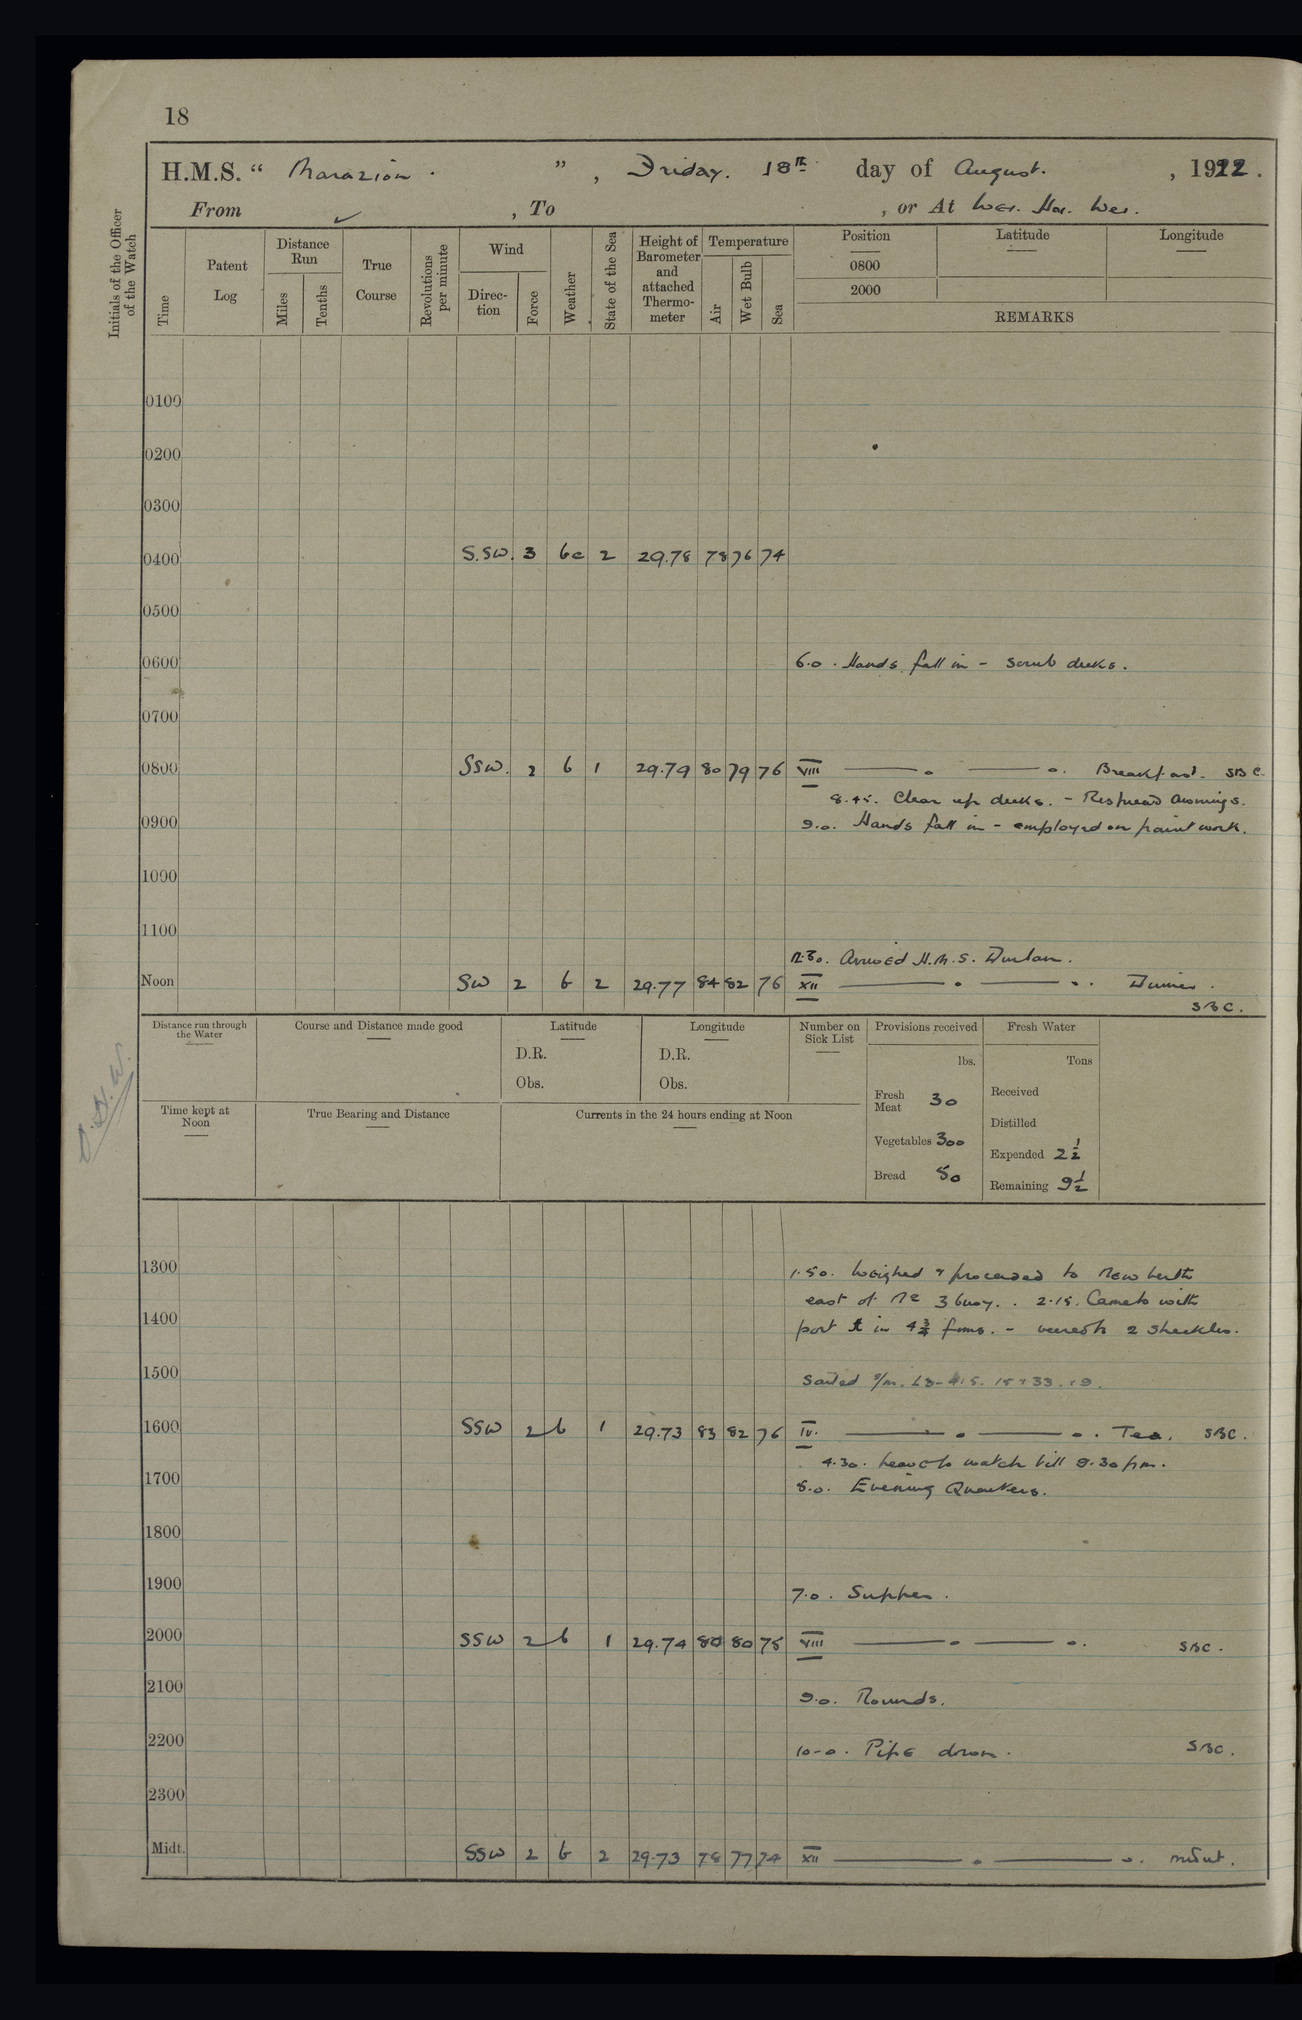 18
H.M.S. " Marazion. ", Friday. 18th day of August. , 1922.
From ✓ , To , or At Wei. Hai. Wei.
Initials of the Officer of the Watch
Time
Patent Log
Distance Run
Miles
Tenths
True Course
Revolutions per minute
Wind
Direction
Force
Weather
State of the Sea
Height of Barometer and attached Thermometer
Temperature
Air
Wet Bulb
Sea
Position
Latitude
Longitude
0800
2000
REMARKS
0100
0200
0300
0400 S.SW. 3 bc 2 29.78 78 76 74
0500
0600 6.0. Hands fall in - scrub decks.
0700
0800 SSW. 2 b 1 29.79 80 79 76 VIII Breakfast. SBC.
8.45. Clear up decks. - Respread awnings.
0900 9.0. Hands fall in - employed on paint work.
1000
1100
11.30. Arrived H.M.S. Durban.
Noon SW 2 b 2 29.77 84 82 76 XII Dinner.
SBC.
Distance run through the Water
Course and Distance made good
Latitude
D.R.
Obs.
Longitude
D.R.
Obs.
Number on Sick List
Provisions received
lbs.
Fresh Meat 30
Vegetables 300
Bread 50
Fresh Water
Tons
Received
Distilled
Expended 2½
Remaining 9½
Time kept at Noon
True Bearing and Distance
Currents in the 24 hours ending at Noon
1300 1.50. Weighed & proceeded to new berth
east of No 3 buoy. . 2.15. Came to with
1400 port in 4¾ fms. - veered to 2 shackles.
1500 Sailed s/m. L3-
1600 SSW 2 b 1 29.73 83 82 76 IV. Tea. SBC.
4.30. Leave to watch till 9.30 pm.
1700 5.0. Evening Quarters.
1800
1900 7.0. Supper.
2000 SSW 2 b 1 29.74 80 80 75 VIII SBC.
2100 9.0. Rounds.
2200 10-0. Pipe down. SBC.
2300
Midt. SSW 2 b 2 29.73 78 77 74 XII